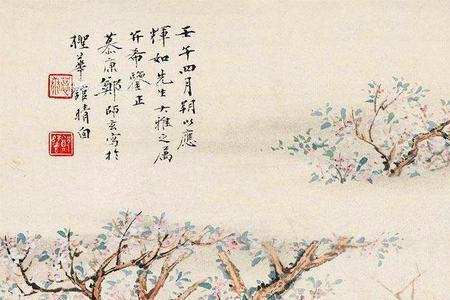 壬午四月朔以應
輝如先生大雅之属
并希鑒正
慕康鄭師玄寫於
櫻華館晴窗